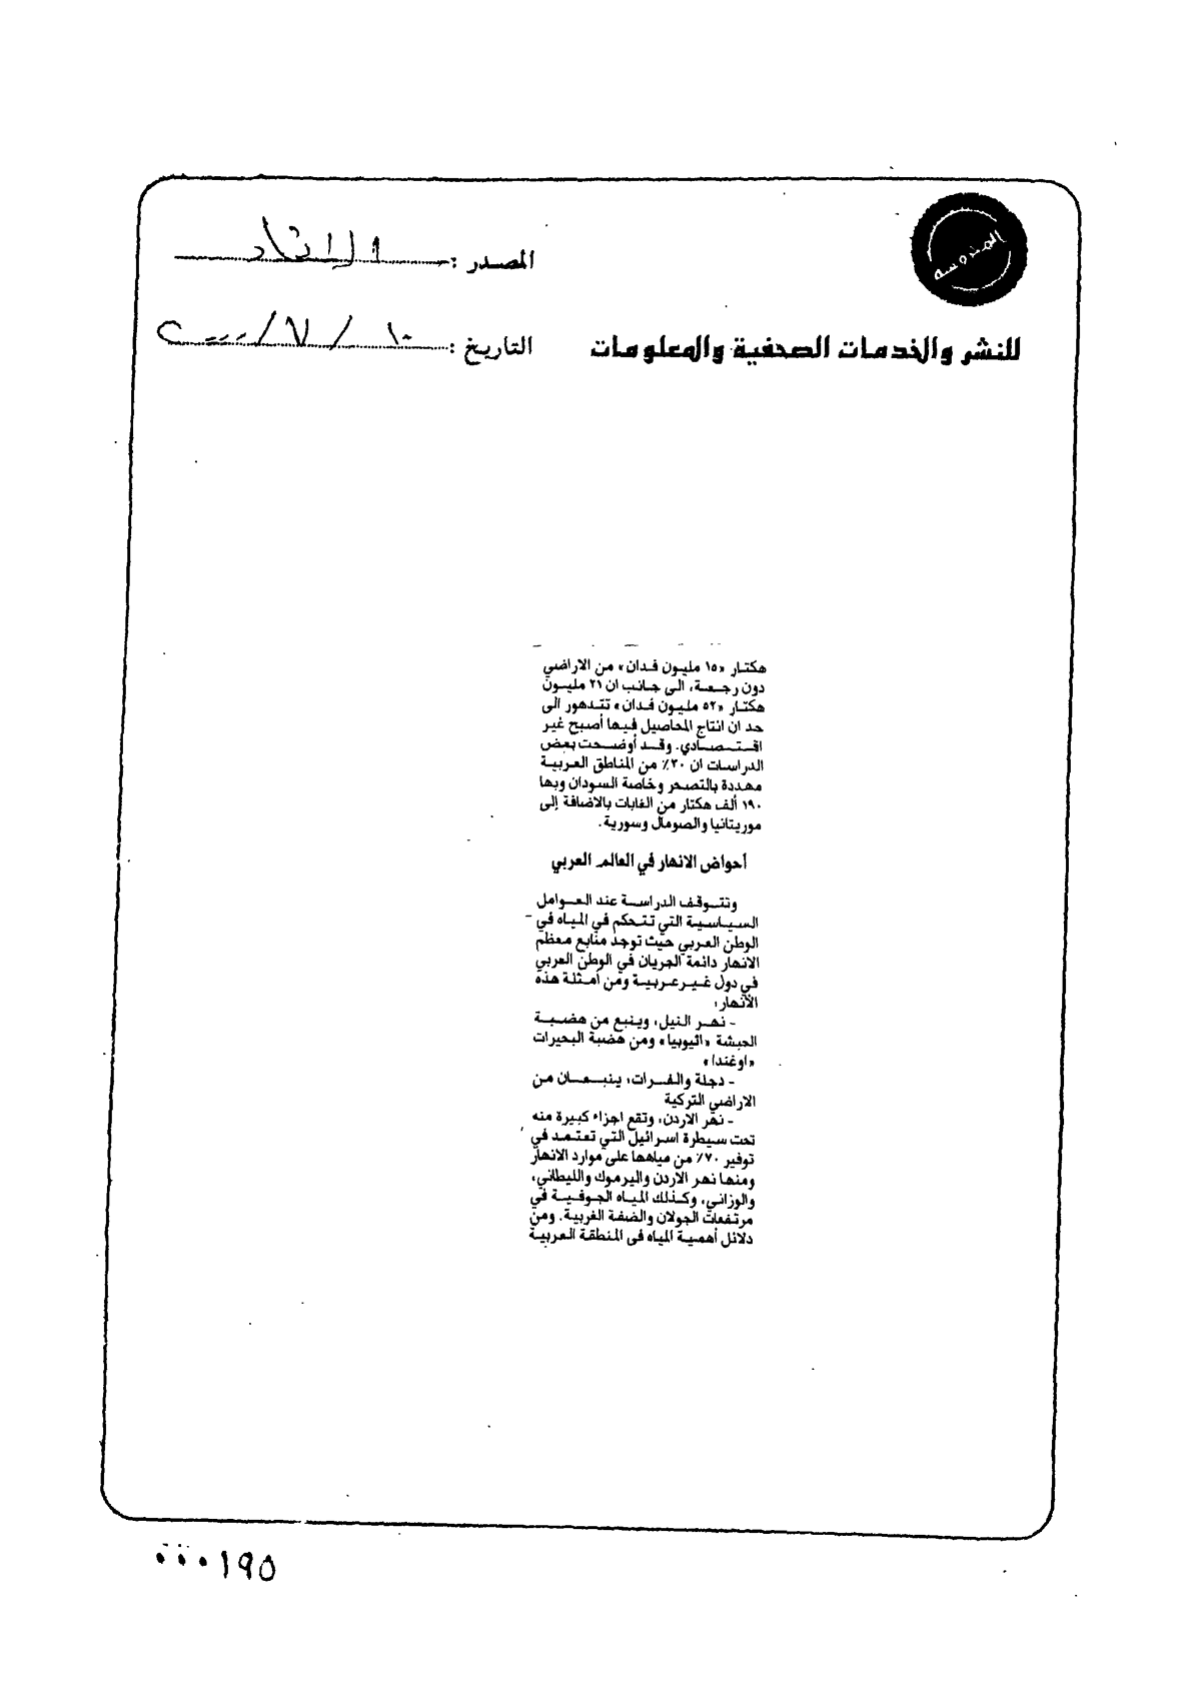 المحروسة
المصدر : الاتحاد
للنشر والخدمات الصحفية والمعلومات
التاريخ : ١٠ / ٧ / ٢٠٠٠
هكتار «١٥ مليون فدان» من الاراضي
دون رجعة، الى جانب ان ٢١ مليون
هكتار «٥٢ مليون فدان» تتدهور الى
حد ان انتاج المحاصيل فيها أصبح غير
اقتصادي. وقد أوضحت بعض
الدراسات ان ٢٠٪ من المناطق العربية
مهددة بالتصحر وخاصة السودان وبها
١٩٠ ألف هكتار من الغابات بالاضافة إلى
موريتانيا والصومال وسورية.
أحواض الانهار في العالم العربي
وتتوقف الدراسة عند العوامل
السياسية التي تتحكم في المياه في
الوطن العربي حيث توجد منابع معظم
الانهار دائمة الجريان في الوطن العربي
في دول غير عربية ومن أمثلة هذه
الأنهار:
- نهر النيل، وينبع من هضبة
الحبشة «اثيوبيا» ومن هضبة البحيرات
«اوغندا»
- دجلة والفرات، ينبعان من
الاراضي التركية
- نهر الاردن، وتقع اجزاء كبيرة منه
تحت سيطرة اسرائيل التي تعتمد في
توفير ٧٠٪ من مياهها على موارد الانهار
ومنها نهر الاردن واليرموك والليطاني،
والوزاني، وكذلك المياه الجوفية في
مرتفعات الجولان والضفة الغربية. ومن
دلائل أهمية المياه في المنطقة العربية
٠٠٠١٩٥